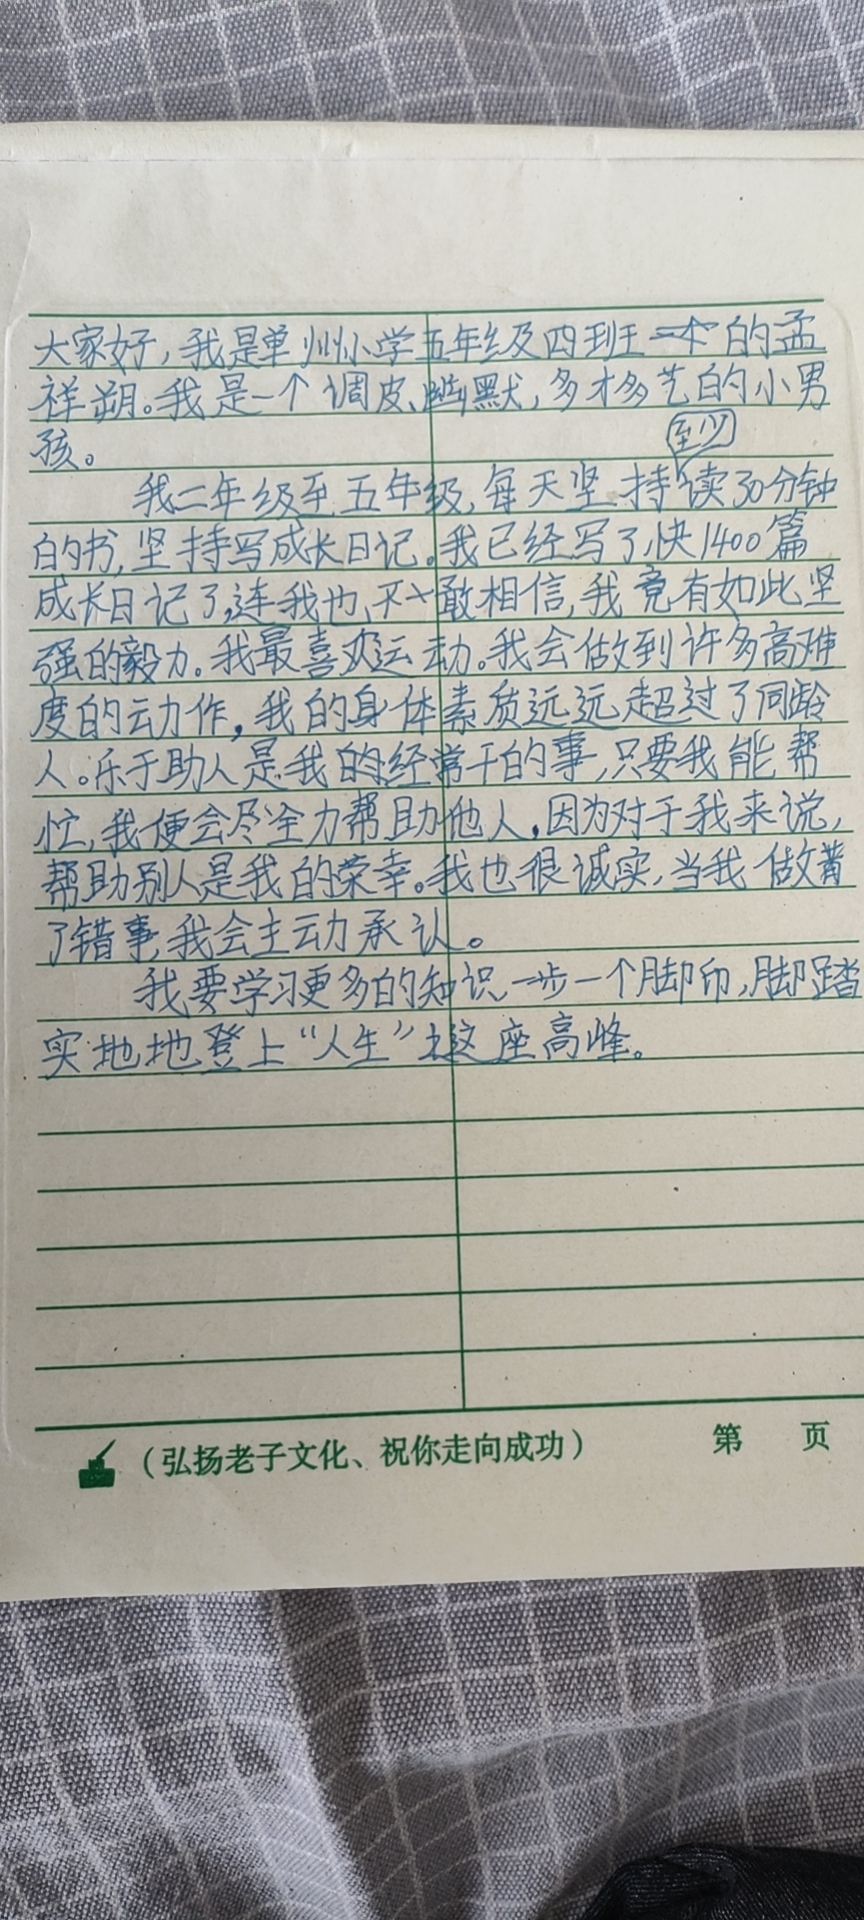 大家好，我是单州小学五年级四班的孟
祥朔。我是一个调皮、幽默，多才多艺的小男
孩。
至少
我二年级至五年级，每天坚持读30分钟
的书，坚持写成长日记。我已经写了快1400篇
成长日记了，连我也不敢相信，我竟有如此坚
强的毅力。我最喜欢运动。我会做到许多高难
度的动作，我的身体素质远远超过了同龄
人。乐于助人是我的经常干的事，只要我能帮
忙，我便会尽全力帮助他人，因为对于我来说，
帮助别人是我的荣幸。我也很诚实，当我做
了错事，我会主动承认。
我要学习更多的知识，一步一个脚印，脚踏
实地地登上“人生”这座高峰。
（弘扬老子文化、祝你走向成功） 第 页